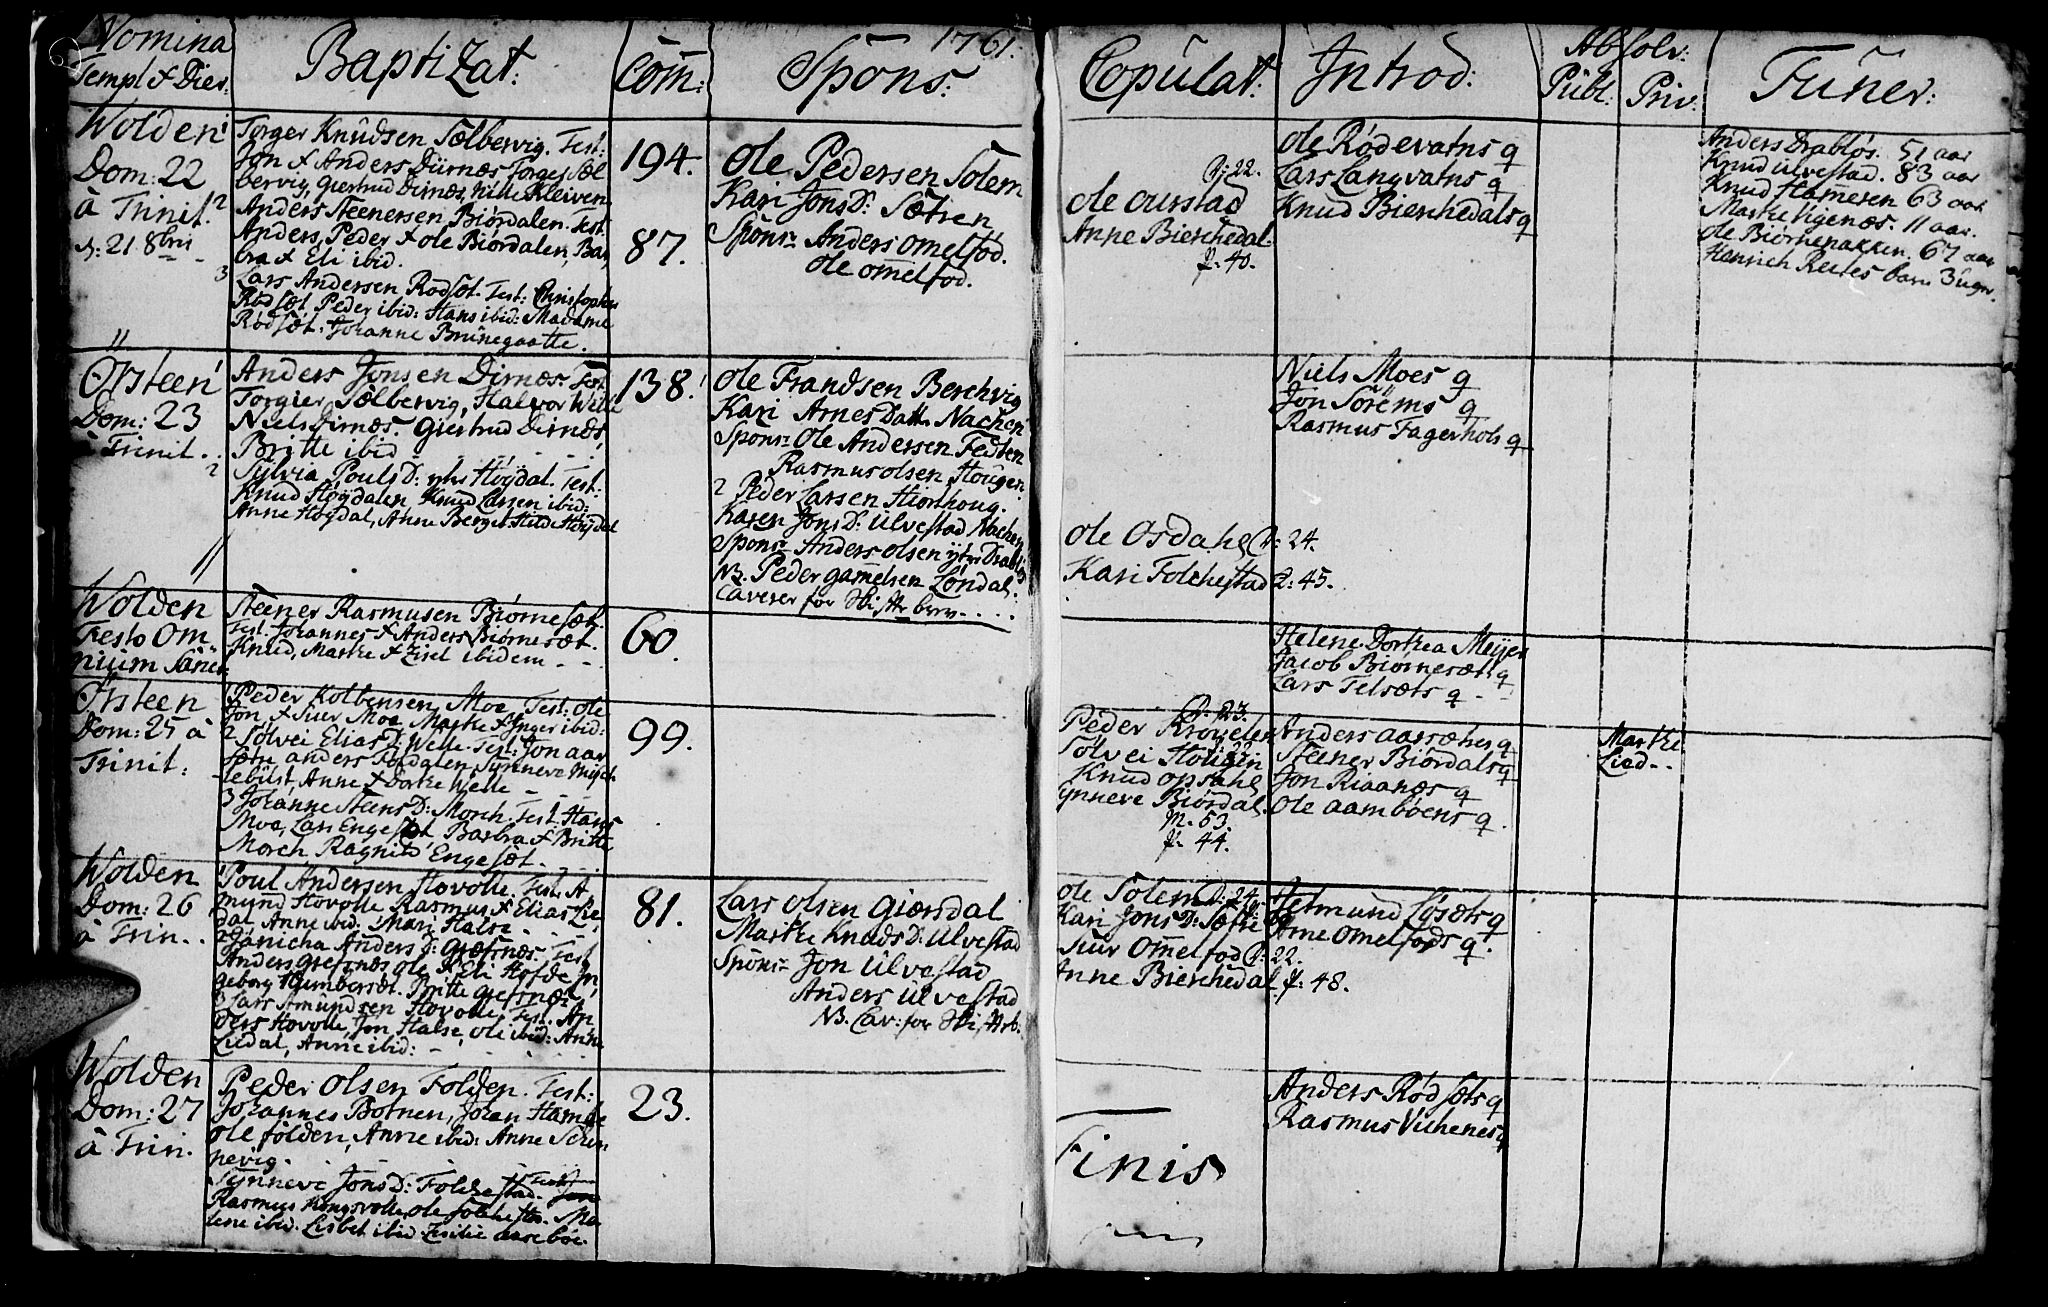 1761.
Nomina
Templ & Dier
Baptizat:
Com̄:
Spons:
Copulat:
Introd:
Absolv:
Publ: Priv:
Funer:
Wolden
Dom: 22
à Trinit:
d: 21 8bris
Torger Knudsen Sælbervig. Test:
Jon & Anders Dürnæs Torger Sæl
bervig, Giertrud Dirnæs, Nille Kleiven
2 Anders Steenersen Biørdalen. Test.
Anders, Peder & Ole Biørdalen, Bar
bra & Eli ibid.
3 Lars Andersen Rødsæt. Test: Christopher
Rødsæt Peder ibid: Hans ibid: Madame
Rødsæt: Johanne Brunegaatte.
194.
87.
Ole Pedersen Solem
Kari Jons D: Sætren
Spons:r Anders Omelfod.
Ole Omelfod.
P: 22.
Ole Aurstad
Anne Bierchedal
P: 40.
Ole Rødevatns q
Lars Langvatns q
Knud Bierchedals q
Anders Drabløs. 51 aar
Knud Ulvestad. 83 aar
Knud Hamersen 63 aar
Marthe Vigenæs. 11 aar.
Ole Biørnenakken. 67 aar
Henrich Reites barn 3 uger.
Ørsteen
Dom: 23
à Trinit..
Anders Jonsen Dirnæs. Test.
Torgier Sælbervig, Halvor Welle
Niels Dirnæs. Giertrud Dirnæs,
Britte ibid
2 Sylvia Pouls D: Høydal. Test:
Knud Høydalen Knud Larsen ibid:
Anne Høydal, Anne Berget Hilde Høydal
138.
Ole Frandsen Berchvig
Kari Arnes Datt. Nachen
Spons:r Ole Andersen Festen
Rasmus Olsen Hougen
2 Peder Larsen Hiorthoug.
Karen Jons D: Ulvestad Nachen
Spons:r Anders Olsen ytre Drabløs
NB. Peder Gamelsen Løndal.
Caverer for Skifttebrev....
Ole Osdahl P: 24.
Kari Folchestad P: 45.
Niels Moes q
Jon Sorems q
Rasmus Fagerhols q
Wolden
Festo Om
nium Sanct
Steener Rasmusen Biørnesæt.
Test. Johannes & Anders Biørnesæt.
Knud, Marthe & Zisel ibidem - -
60.
Helene Dorthea Meyer
Jacob Biørnesæts q
Lars Telsæts q -
Ørsteen
Dom: 25 à
Trinit:
1 Peder Kolbensen Moe, Test. Ole
Jon & Siur Moe Marthe & Inger ibid:
2 Solvei Elias D: Welle. Test: Jon Aar
sætre Anders Foldalen, Synneve Mykl
lebust, Anne & Dorthe Welle - -
3 Johanne Steens D: Morch. Test. Hans
Moe, Lars Engesæt, Barbra & Britte
Morch Ragnild Engesæt. - -
99.
P: 23.
Peder Krøvelen
Solvei Hougen
Knud Opsahl
Synneve Biørdal.
M. 53
P. 44.
Anders Aarsæthers q
Steener Biørdals q
Jon Riaanæs q
Ole Aambøens q.
Marthe
Lied..
Wolden
Dom: 26
à Trin..
1 Poul Andersen Hovolle. Test. A
mund Hovolle Rasmus & Elias Lie
dal Anne ibid: Mari Halse - -
2 Janicha Anders D: Grefsnæs. Test.
Anders Grefsnæs Ole & Eli Hofde In
geborg Humbersæt. Britte Grefsnæs.
3 Lars Amundsen Hovolle, Test. An
ders Hovolle, Jon Halse, Ole ibid: Anne
Liedal, Anne ibid: -
81.
Lars Olsen Giærsdal
Marthe Knuds D: Ulvestad
Spons:r Jon Ulvestad
Anders Ulvestad
NB. Cav: for Skifttb.
Ole Solem P: 24.
Kari Jons D: Sætre
Siur Omelfod P: 22.
Anne Bierchedal P: 48.
Helmund Løsæts q
Arne Omelfods q.
Wolden
Dom: 27
à Trin.
Peder Olsen Folden. Test:
Johannes Botnen, Johan Hamde
Ole Folden, Anne ibid: Anne Schin
nevig.
Synneve Jons D: Folchestad. Test:
Rasmus Kongsvolle, Ole Folchestad. Ma
lene ibid. Lisbet ibid Zisilie Aarebøe.
23.
Finis
Anders Rødsæts q
Rasmus Vichenes q